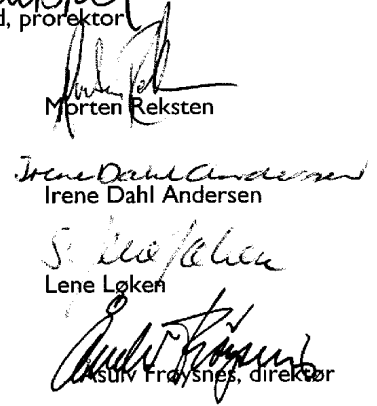 d, prorektor
Morten Reksten
Irene Dahl Andersen
Irene Dahl Andersen
Lene Løken
Asulv Frøysnes, direktør